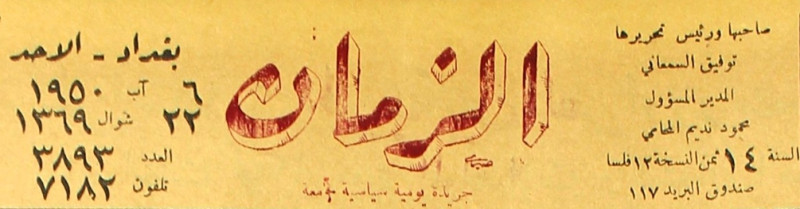 صاحبها ورئيس تحريرها
توفيق السمعاني
المدير المسؤول
محمود نديم المحامي
السنة ١٤ ثمن النسخة ١٢ فلسا
صندوق البريد ١١٧
الزمان
جريدة يومية سياسية جامعة
بغداد - الاحد
٦ آب ١٩٥٠
٢٢ شوال ١٣٦٩
العدد ٣٨٩٣
تلفون ٧١٨٢